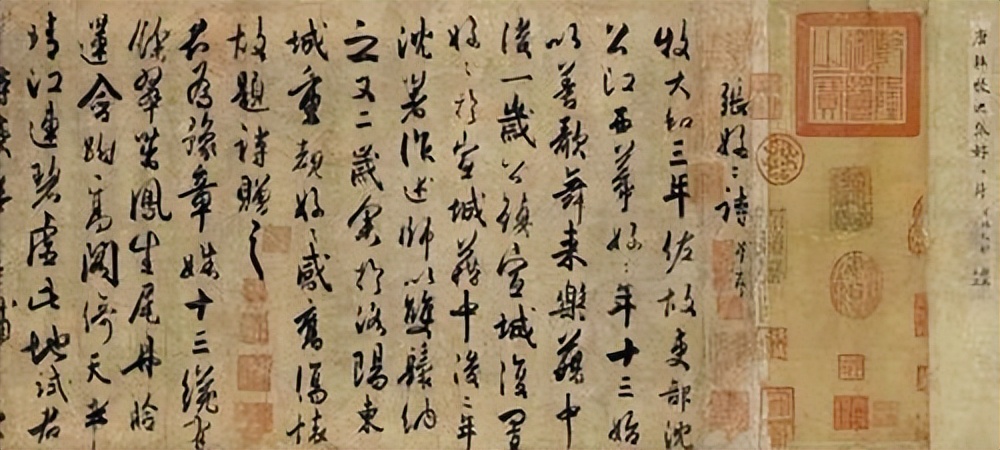 唐杜牧之張好〻詩
張好〻詩 并序
牧大和三年佐故吏部沈
公江西幕好〻年十三始
以善歌舞來樂籍中
後一歲公鎮宣城復置
好〻於宣城籍中後二年
沈著作述師以雙鬟納
之又二歲余於洛陽東
城重覩好〻感舊傷懷
故題詩贈之
君為豫章姝十三纔有
餘翠茁鳳生尾丹臉
蓮含跗高閣倚天半
晴江連碧虛此地試君